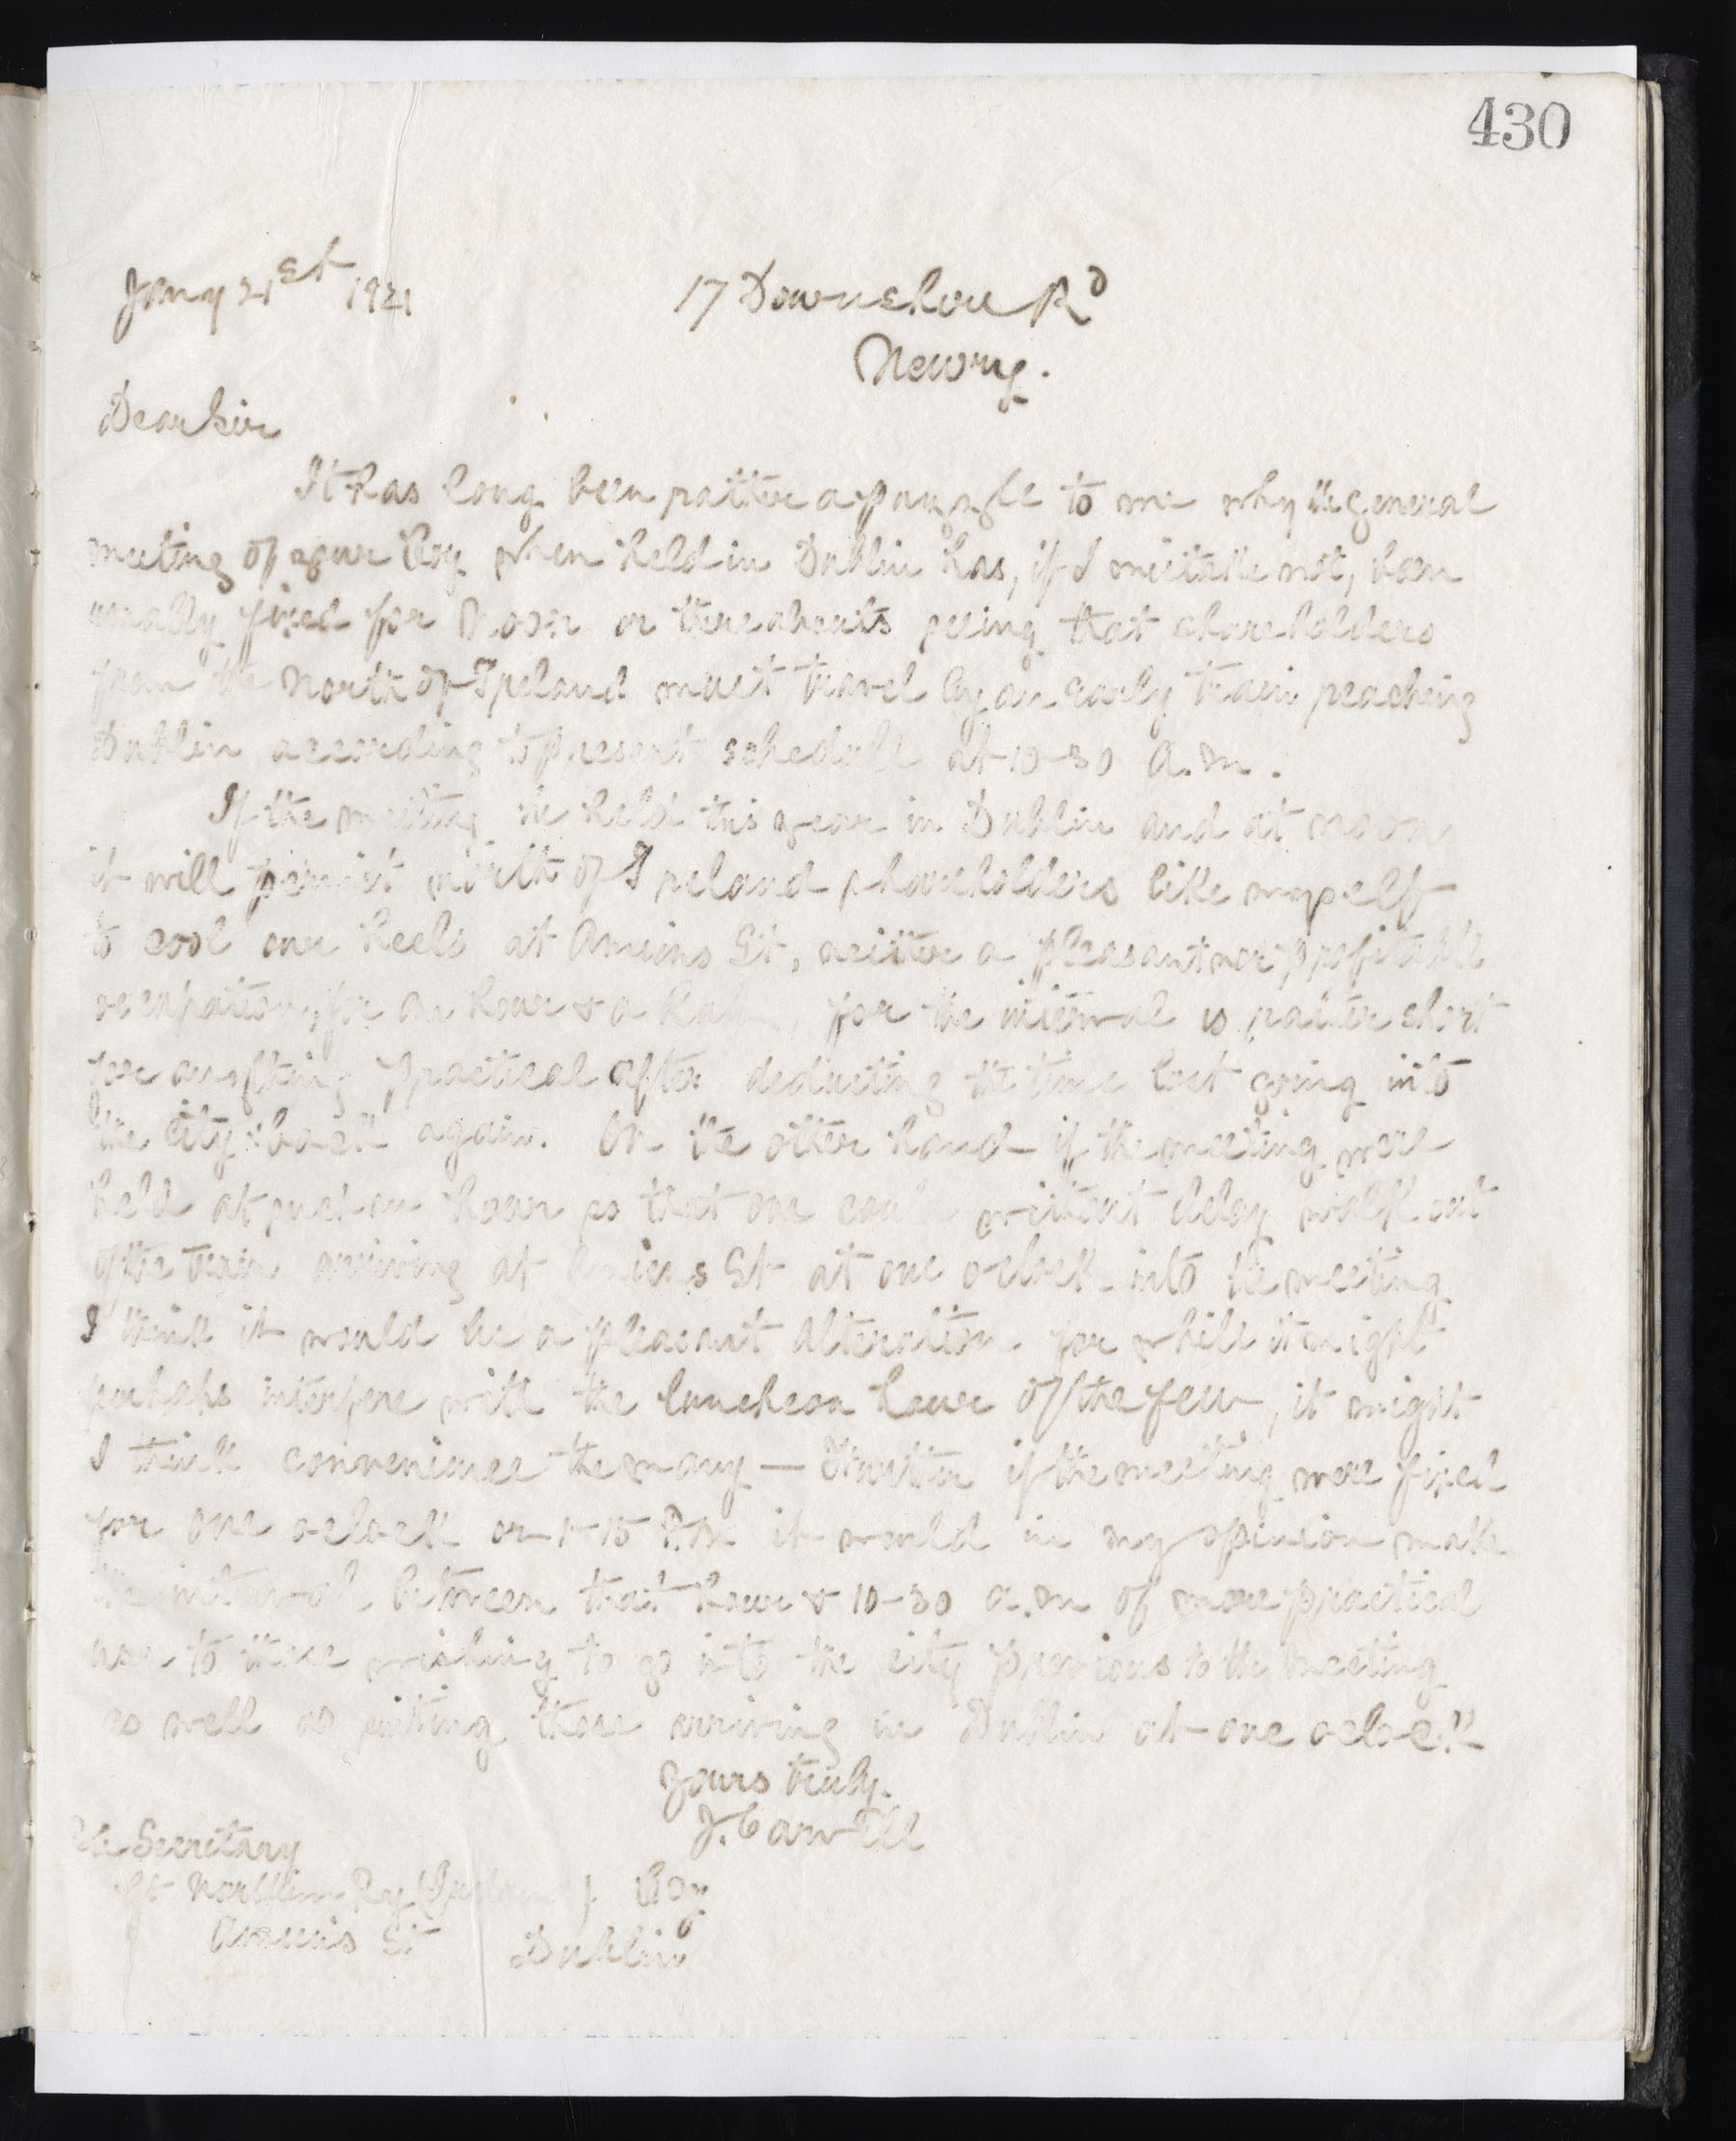 430
Jany 21st 1921
17 Downshire Rd
Newry.
Dear Sir
It has long been rather a puzzle to me why the general
meeting of your Coy when held in Dublin has, if I mistake not, been
usually fixed for Noon or thereabouts seeing that shareholders
from the North of Ireland must travel by an early train reaching
Dublin according to present schedule at 10-30 A.M.
If the meeting be held this year in Dublin and at noon
it will permit north of Ireland shareholders like myself
to cool our heels at Amiens St, neither a pleasant nor profitable
occupation, for an hour & a half, for the interval is rather short
for anything practical after deducting the time lost going into
the city & back again. On the other hand if the meeting were
held at such an hour so that one could without delay walk out
of the train arriving at Amiens St at one oclock into the meeting
I think it would be a pleasant alteration for while it might
perhaps interfere with the luncheon hour of the few, it might
I think convenience the many — Further if the meeting were fixed
for one oclock or 1-15 P.M. it would in my opinion make
the interval between that hour & 10-30 a.m of more practical
use to those wishing to go into the city previous to the meeting
as well as suiting those arriving in Dublin at one oclock
Yours truly.
J. Carvill
The Secretary
Gt Northern Ry (Ireland) Coy
Amiens St Dublin